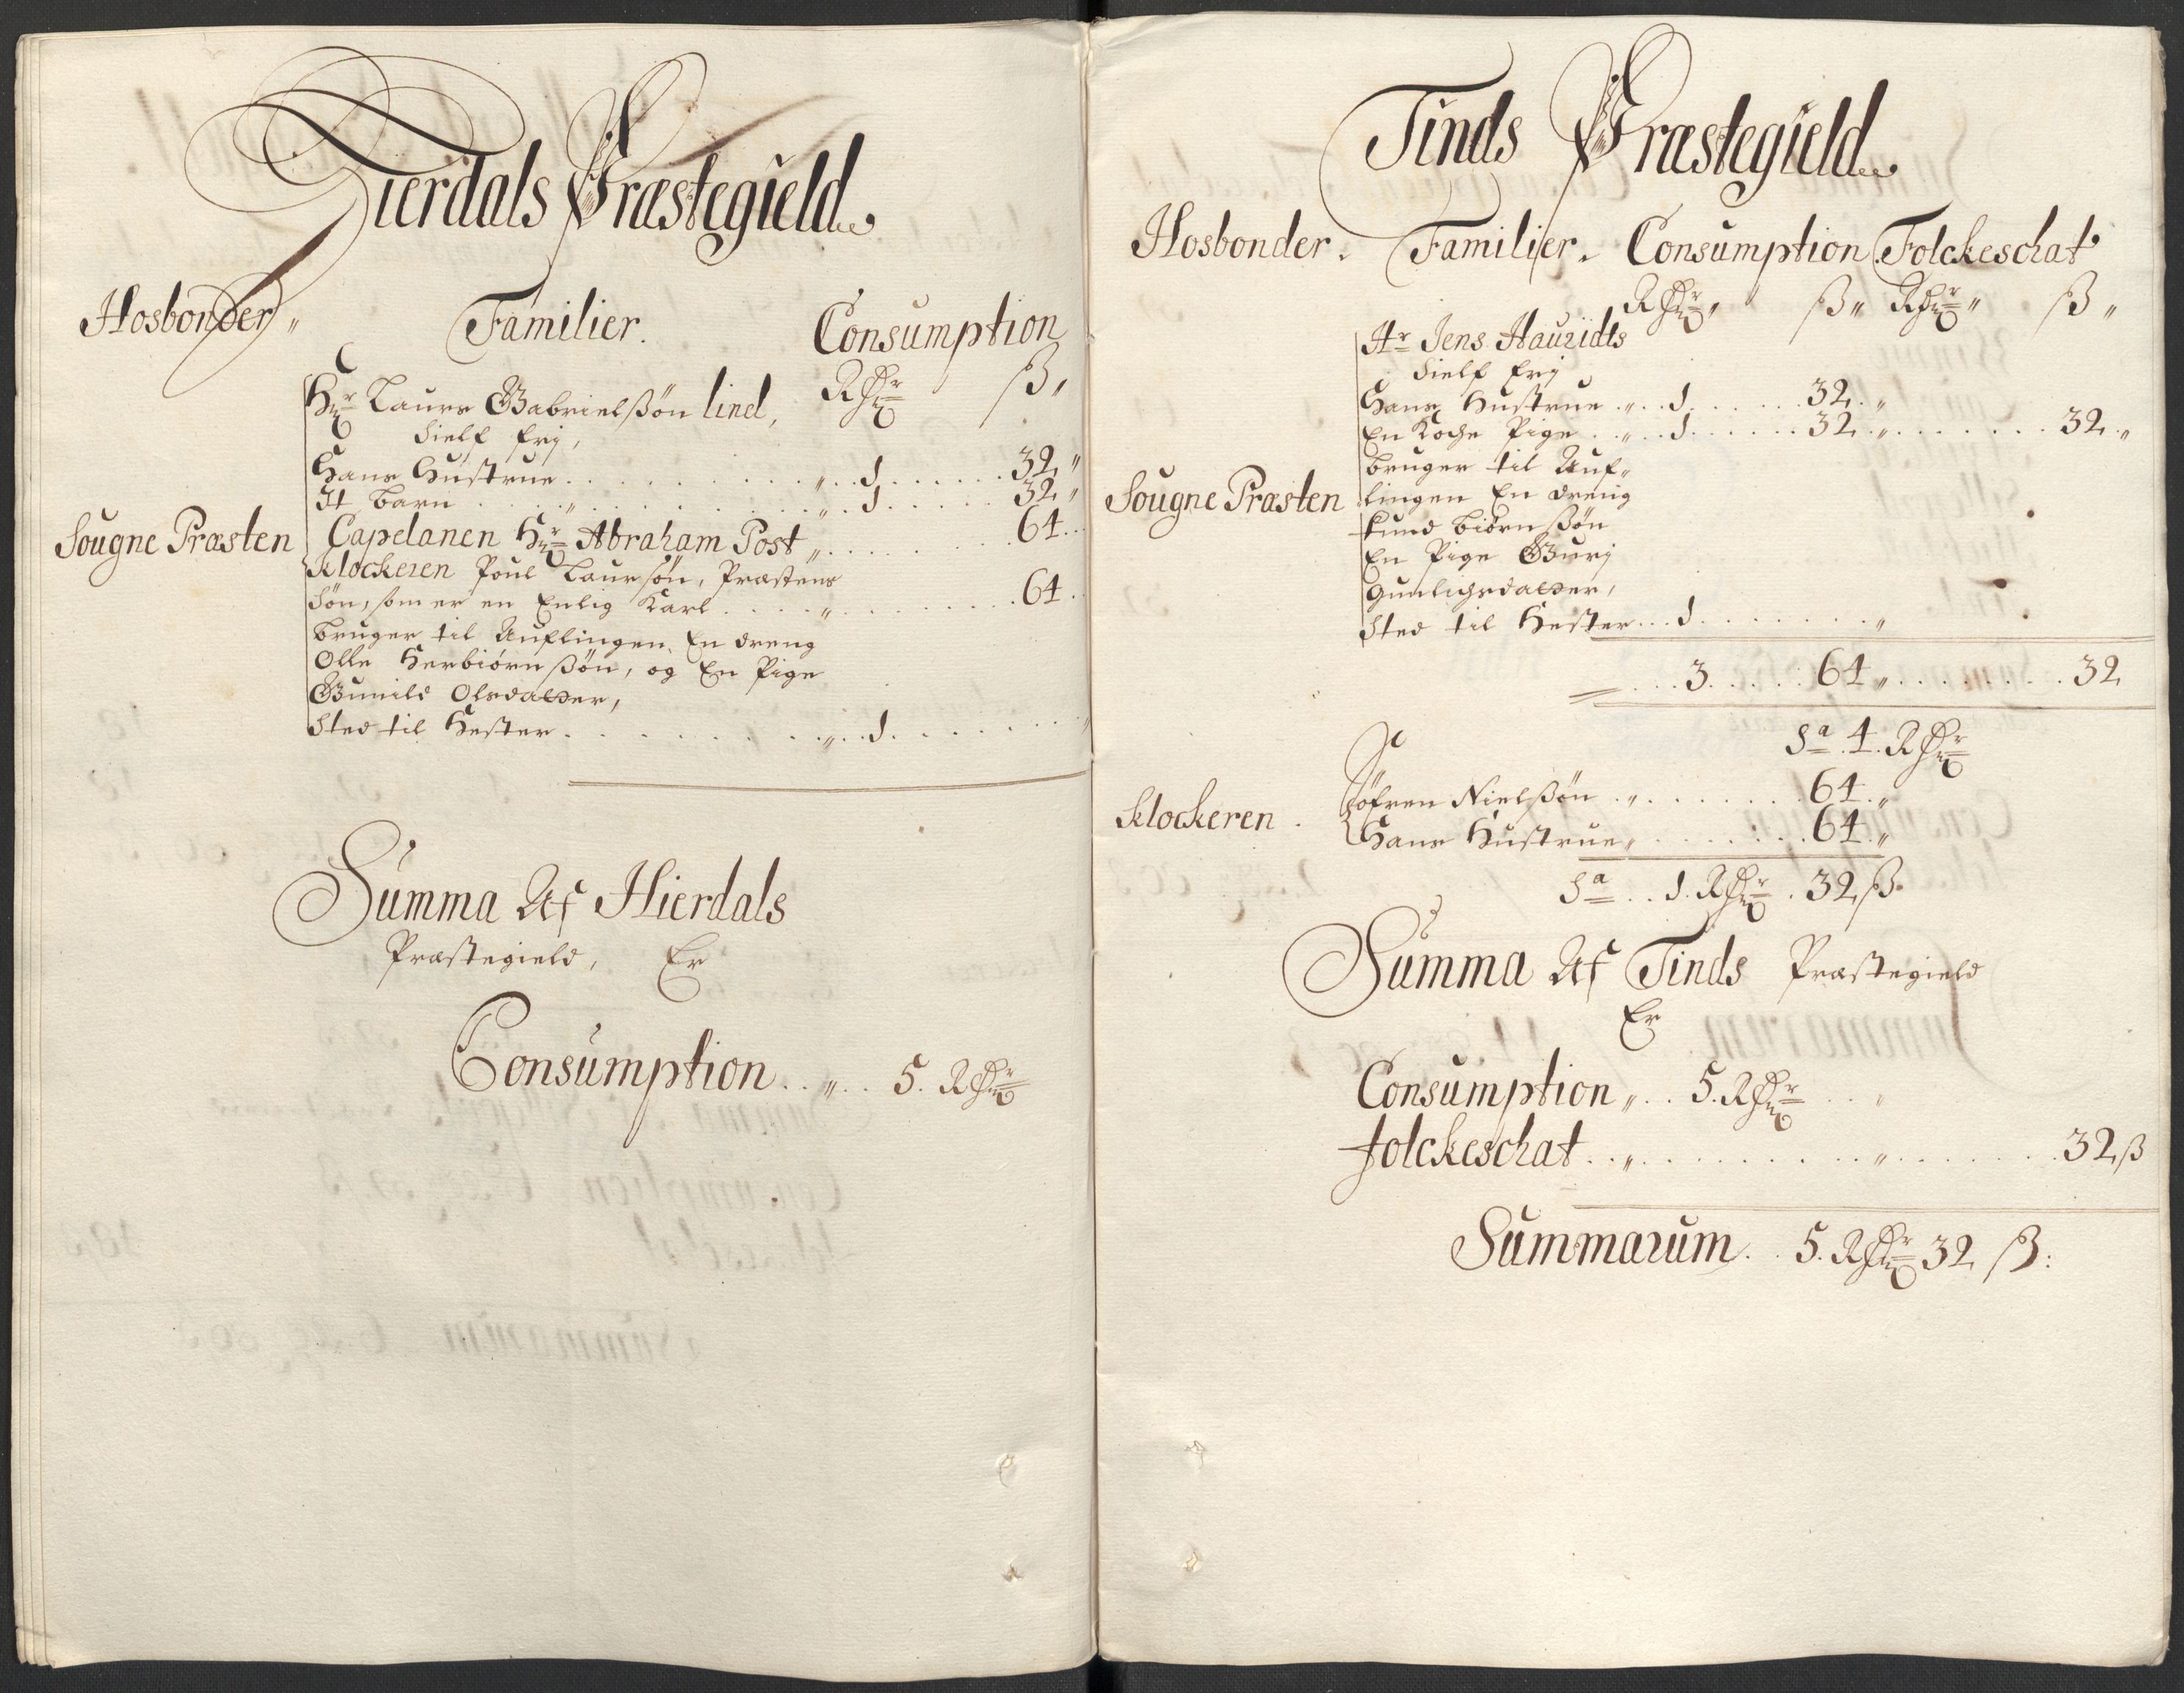 Hierdals Præstegield
Hosbonder, Familier. Consumption
Rdr ß,
Hr Laurs Gabrielßøn Lind,
Sielf fri,
Hans Hustrue 1 32
It Barn 1 32
Sougne Præsten Capelanen Hr Abraham Post 64
Klockeren Poul Laursøn, Præstens
Søn, som er en Enlig Karl 64
bruger til Auflingen En dreng
Olle Herbiørnßøn, og En Pige
Gunild Olsdatter,
Sted til Hester 1
Summa Af Hierdals
Præstegield, Er
Consumption 5. Rdr
Tinds Præstegield
Hosbonder. Familier. Consumption Folckeschat
Rdr ß Rdr ß
Hr Jens Lauridts
Sielf fri
Hans Hustrue 1 32
En Koche Pige 1 32 32
bruger til Auf-
Sougne Præsten lingen En dreng
Knud Biørnßøn
En Pige Guri
Gunlichsdatter,
Sted til Hester 1
3 64 32
Sa 4. Rdr
Klockeren Søfren Nielßøn 64
Hans Hustrue 64
Sa 1. Rdr 32 ß
Summa Af Tinds Præstegield
Er
Consumption 5. Rdr
Folckeschat 32 ß
Summarum 5. Rdr 32 ß: